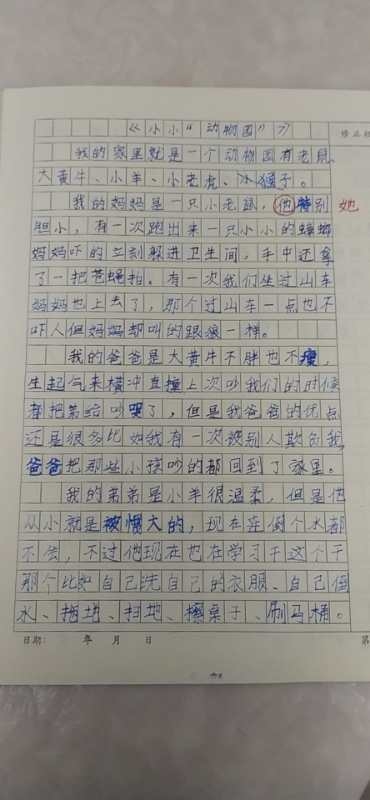 《小小“动物园”》
修正栏
我的家里就是一个动物园有老鼠、
大黄牛、小羊、小老虎、小猴子。
我的妈妈是一只小老鼠,他特别 她
胆小,有一次跑出来一只小小的蟑螂
妈妈吓的立刻躲进卫生间,手中还拿
了一把苍蝇拍。有一次我们坐过山车
妈妈也上去了,那个过山车一点也不
吓人但妈妈却叫的跟狼一样。
我的爸爸是大黄牛不胖也不瘦,
生起气来横冲直撞上次吵我们的时候
都把弟给叫哭了,但是我爸爸的优点
还是很多比如我有一次被别人欺负我,
爸爸把那些小孩吵的都回到了家里。
我的弟弟是小羊很温柔,但是他
从小就是被惯大的,现在连倒个水都
不会,不过他现在也在学习干这个干
那个比如自己洗自己的衣服、自己倒
水、拖地、扫地、擦桌子、刷马桶。
日期: 年 月 日 第